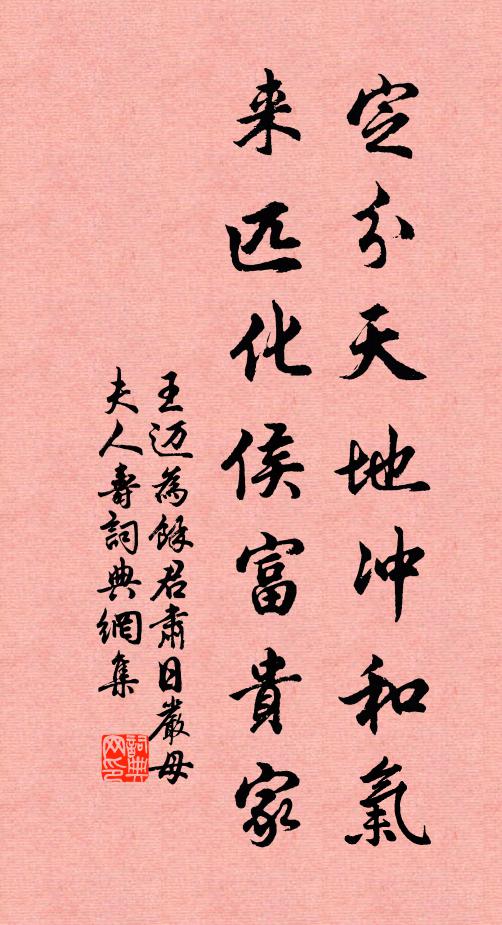 定分天地冲和氣
来匹化侯富貴家
王迈為餘君肅日嚴母
夫人壽詞典網集
詞典网印